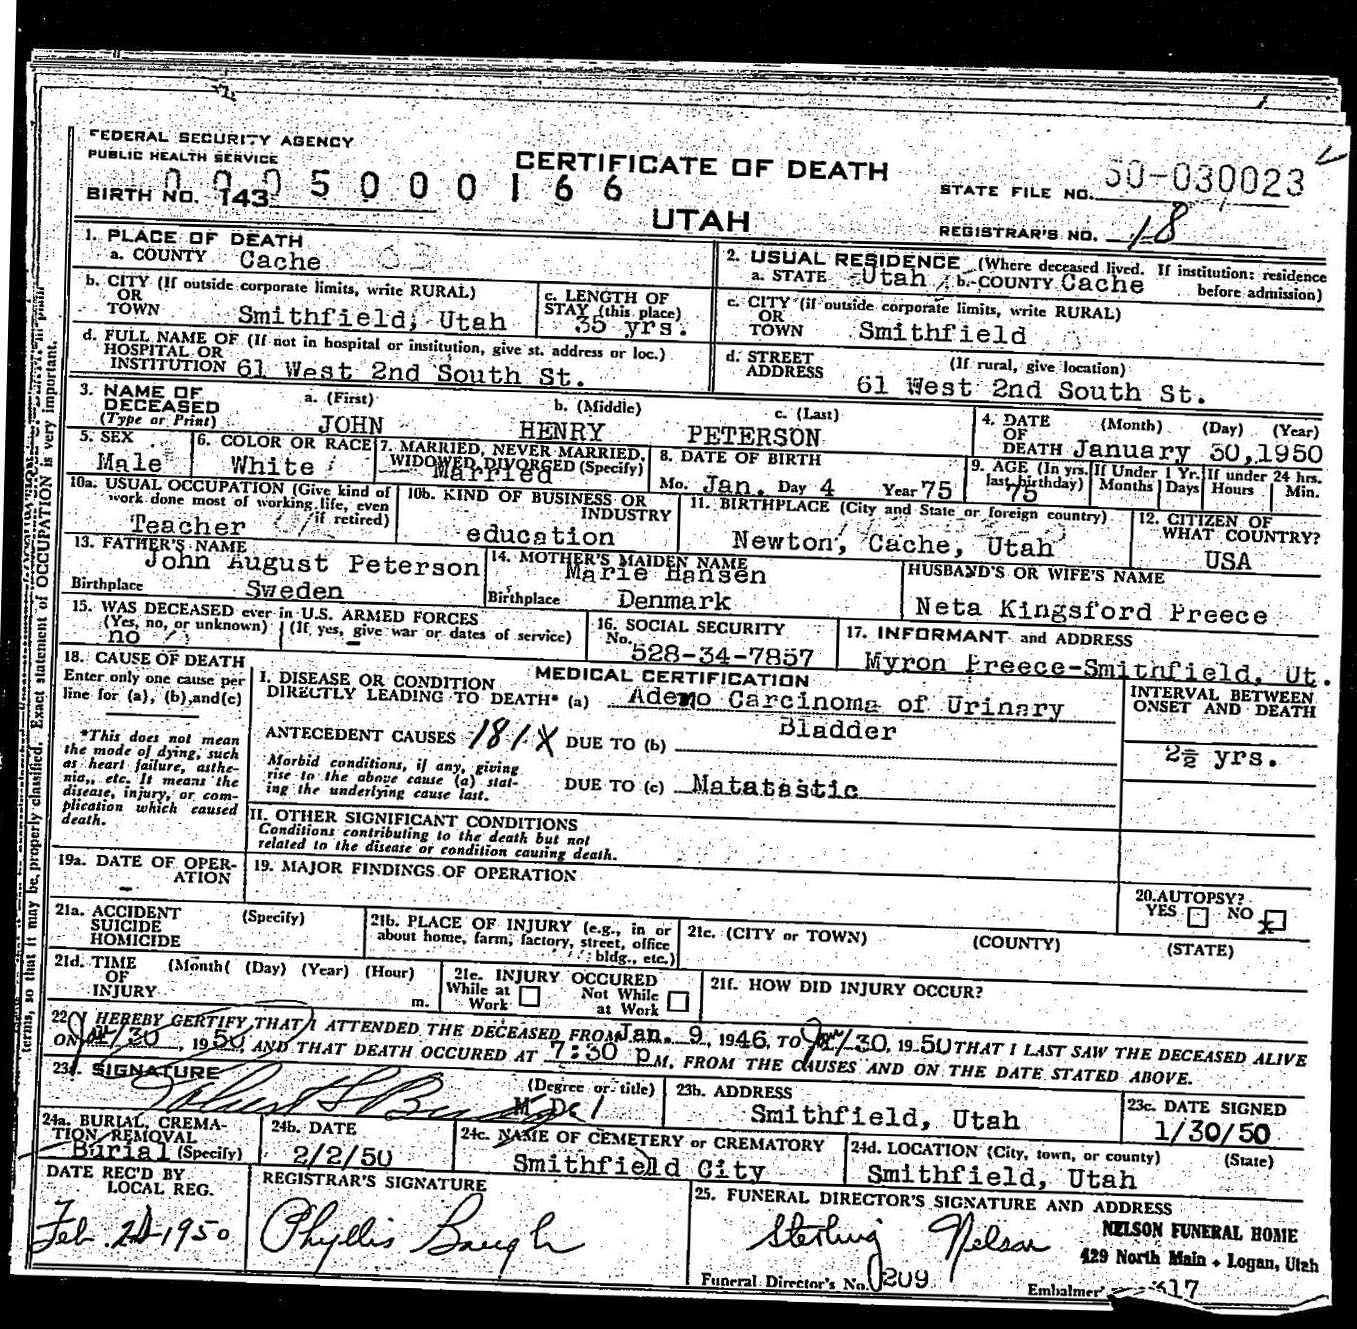 FEDERAL SECURITY AGENCY
PUBLIC HEALTH SERVICE
CERTIFICATE OF DEATH
UTAH
BIRTH NO. 143
0005000166
STATE FILE NO. 50-030023
REGISTRAR'S NO. 18
1. PLACE OF DEATH
a. COUNTY Cache
2. USUAL RESIDENCE (Where deceased lived. If institution: residence before admission)
a. STATE Utah b. COUNTY Cache
b. CITY (If outside corporate limits, write RURAL)
OR
TOWN Smithfield, Utah
c. LENGTH OF
STAY (this place)
35 yrs.
c. CITY (if outside corporate limits, write RURAL)
OR
TOWN Smithfield
d. FULL NAME OF (If not in hospital or institution, give st. address or loc.)
HOSPITAL OR
INSTITUTION 61 West 2nd South St.
d. STREET
ADDRESS
(If rural, give location)
61 West 2nd South St.
3. NAME OF
DECEASED
(Type or Print)
a. (First) b. (Middle) c. (Last)
JOHN HENRY PETERSON
4. DATE OF DEATH (Month) (Day) (Year)
January 30, 1950
5. SEX
Male
6. COLOR OR RACE
White
7. MARRIED, NEVER MARRIED,
WIDOWED, DIVORGED (Specify)
Married
8. DATE OF BIRTH
Mo. Jan. Day 4 Year 75
9. AGE (In yrs. last birthday)
75
If Under 1 Yr. If under 24 hrs.
Months Days Hours Min.
10a. USUAL OCCUPATION (Give kind of
work done most of working life, even
if retired)
Teacher
10b. KIND OF BUSINESS OR
INDUSTRY
education
11. BIRTHPLACE (City and State or foreign country)
Newton, Cache, Utah
12. CITIZEN OF
WHAT COUNTRY?
USA
13. FATHER'S NAME
John August Peterson
Birthplace Sweden
14. MOTHER'S MAIDEN NAME
Marie Hansen
Birthplace Denmark
HUSBAND'S OR WIFE'S NAME
Neta Kingsford Preece
15. WAS DECEASED ever in U.S. ARMED FORCES
(Yes, no, or unknown) (If yes, give war or dates of service)
no -
16. SOCIAL SECURITY
No.
528-34-7857
17. INFORMANT and ADDRESS
Myron Preece-Smithfield, Ut.
18. CAUSE OF DEATH
Enter only one cause per
line for (a), (b), and (c)
*This does not mean
the mode of dying, such
as heart failure, asthe-
nia, etc. It means the
disease, injury, or com-
plication which caused
death.
MEDICAL CERTIFICATION
I. DISEASE OR CONDITION
DIRECTLY LEADING TO DEATH* (a) Ademo Carcinoma of Urinary
Bladder
ANTECEDENT CAUSES 181X DUE TO (b)
Morbid conditions, if any, giving
rise to the above cause (a) stat-
ing the underlying cause last.
DUE TO (c) Matatastic
INTERVAL BETWEEN
ONSET AND DEATH
2½ yrs.
II. OTHER SIGNIFICANT CONDITIONS
Conditions contributing to the death but not
related to the disease or condition causing death.
19a. DATE OF OPER-
ATION
-
19. MAJOR FINDINGS OF OPERATION
20. AUTOPSY?
YES NO x
21a. ACCIDENT
SUICIDE
HOMICIDE
(Specify)
21b. PLACE OF INJURY (e.g., in or
about home, farm, factory, street, office
bldg., etc.)
21c. (CITY or TOWN) (COUNTY) (STATE)
21d. TIME
OF
INJURY
(Month( (Day) (Year) (Hour)
m.
21e. INJURY OCCURED
While at
Work
Not While
at Work
21f. HOW DID INJURY OCCUR?
22. I HEREBY CERTIFY THAT I ATTENDED THE DECEASED FROM Jan. 9, 1946, TO Jan/30, 1950 THAT I LAST SAW THE DECEASED ALIVE
ON Jan/30, 1950, AND THAT DEATH OCCURED AT 7:30 pM, FROM THE CAUSES AND ON THE DATE STATED ABOVE.
23. SIGNATURE
(Degree or title)
M.D.
23b. ADDRESS
Smithfield, Utah
23c. DATE SIGNED
1/30/50
24a. BURIAL, CREMA-
TION, REMOVAL
Burial (Specify)
24b. DATE
2/2/50
24c. NAME OF CEMETERY or CREMATORY
Smithfield City
24d. LOCATION (City, town, or county) (State)
Smithfield, Utah
DATE REC'D BY
LOCAL REG.
Feb. 1950
REGISTRAR'S SIGNATURE
Phyllis Baugh
25. FUNERAL DIRECTOR'S SIGNATURE AND ADDRESS
Sterling Nelson
NELSON FUNERAL HOME
429 North Main • Logan, Utah
Funeral Director's No. 209
Embalmer' 17
terms, so that it may be properly classified. Exact statement of OCCUPATION is very important.